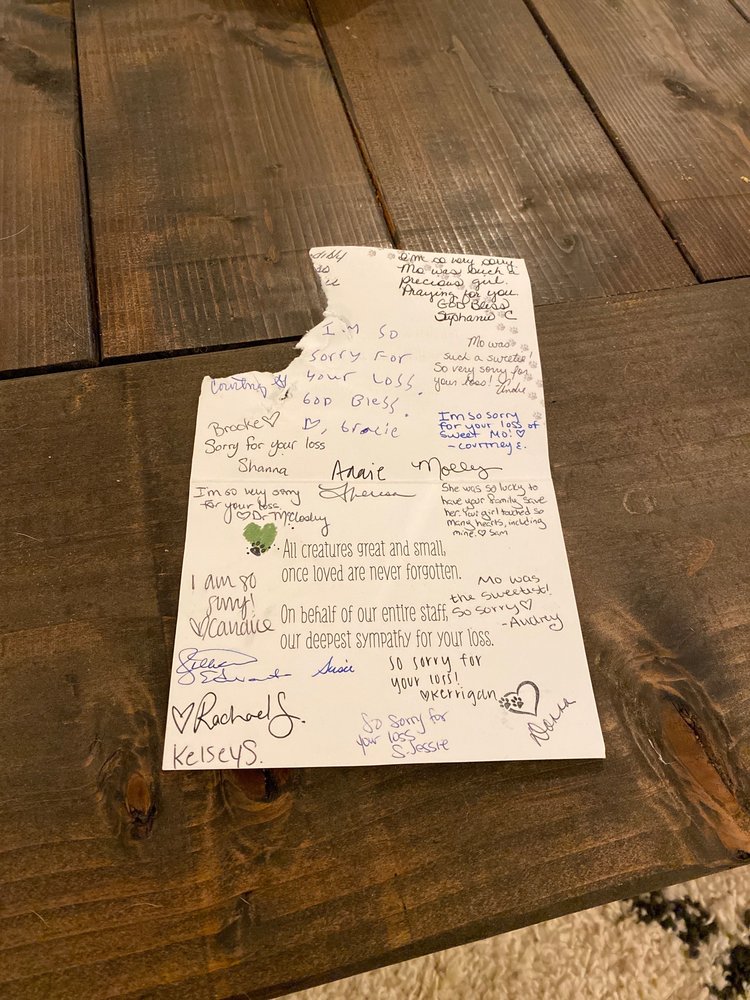 I'm so very sorry
Mo was such a
precious girl.
Praying for you.
GOD Bless
Stephanie C
I'm so
sorry for
your Loss
GOD Bless.
Gracie
Mo was
such a sweetie!
So very sorry for
your loss!
Courtney
Brooke♡
Sorry for your loss
Shanna
I'm so sorry
for your loss of
sweet Mo! ♡
- Courtney E.
Annie Molly
Theresa
I'm so very sorry
for your loss
♡Dr McClosky
She was so lucky to
have your family save
her. Your girl touched so
many hearts, including
mine. ♡ Sam
All creatures great and small,
once loved are never forgotten.
I am so
sorry!
♡Candice
Mo was
the sweetest!
So sorry♡
-Audrey
On behalf of our entire staff,
our deepest sympathy for your loss.
Edwards
Susie
So sorry for
your loss!
♡Kerrigan
♡Rachael S.
Kelsey S.
So sorry for
your loss
S. Jessie
Dana